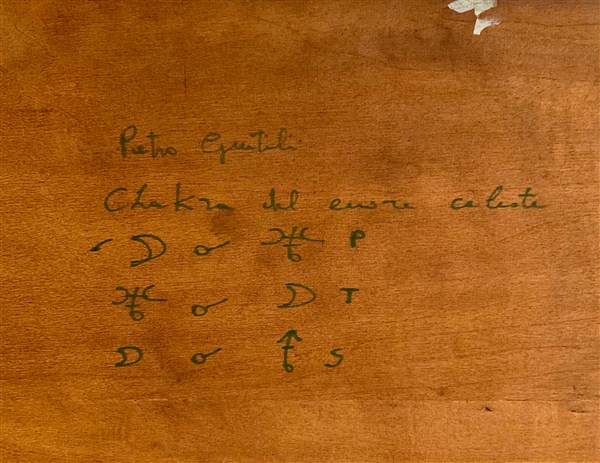 Pietro Gentili
Chakra del cuore celeste
☽ ☌ ♅ P
♅ ☌ ☽ T
☽ ☌ S